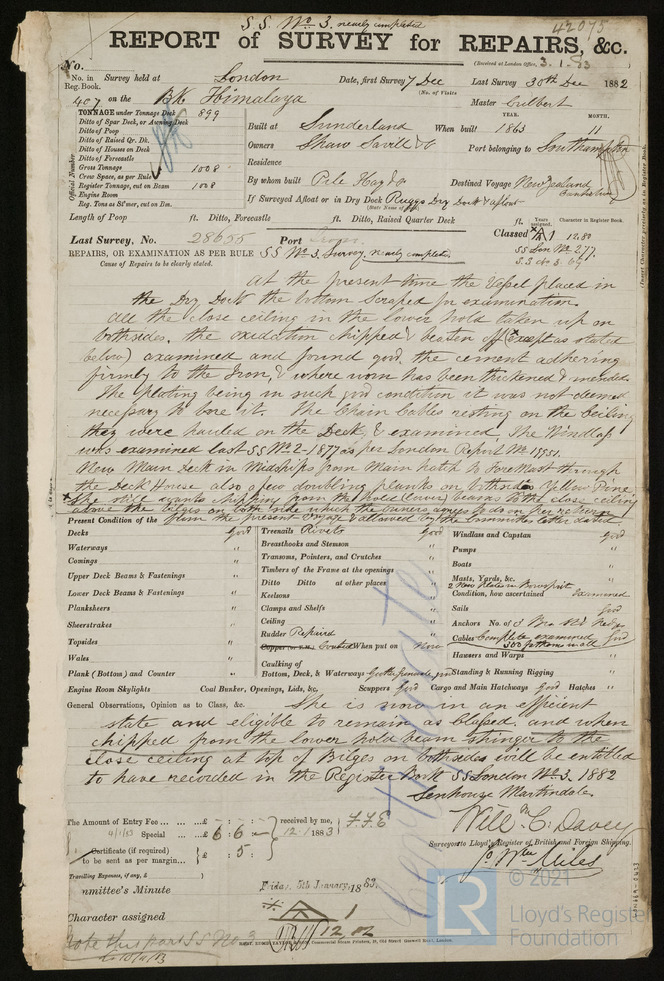 S.S. No 3. nearly completed
42075
REPORT of SURVEY for REPAIRS, &c.
(Received at London Office, 3.1.83
No.
No. in Reg. Book. Survey held at London Date, first Survey 7 Dec Last Survey 30th Dec 1882
(No. of Visits
407 on the Bk Himalaya Master Culbert
TONNAGE under Tonnage Deck 899
Ditto of Spar Deck, or Awning Deck
Ditto of Poop
Ditto of Raised Qr. Dk.
Ditto of Houses on Deck
Ditto of Forecastle
Gross Tonnage 1008
Crew Space, as per Rule
Register Tonnage, cut on Beam 1008
Engine Room
Reg. Tons as St'mer, cut on Bm.
Official Number
YEAR. MONTH.
Built at Sunderland When built 1863 11
Owners Shaw Savill & Co Port belonging to Southampton
Residence
By whom built Pile Hay & Co Destined Voyage New Zealand Canterbury
If Surveyed Afloat or in Dry Dock Ruggs Dry Dock & afloat
(State Name of Dock)
Length of Poop ft. Ditto, Forecastle ft. Ditto, Raised Quarter Deck ft.
Years assigned. Character in Register Book.
Classed A 1 12,80
SS Lon No 2.77
S.S. No 3. 69
Last Survey, No. 28655 Port Lon
REPAIRS, OR EXAMINATION AS PER RULE SS No 3. Survey, nearly completed
Cause of Repairs to be clearly stated.
At the present time the Vessel placed in
the Dry Dock the bottom scraped for examination
all the close ceiling in the lower hold taken up on
bothsides. the oxidation chipped & beaten off (Except as stated
below) examined and found good, the cement adhering
firmly to the Iron, & where worn has been thickened & mended
The plating being in such good condition it was not deemed
necessary to bore it. The Chain Cables resting on the Ceiling
they were hauled on the Deck & examined. The Windlass
was examined last SS No 2-1877 as per London Report No
New Main Deck in Midships from Main hatch to Foremast through
the Deck House also a few doubling planks on bothsides Yellow Pine
She still wants chipping from the hold (lower) beams to the close ceiling
above the bilges on both side which the owners agrees to do on her return
Present Condition of the from the present Voyage & allowed by the Committee letter dated
Decks Good
Waterways "
Comings "
Upper Deck Beams & Fastenings "
Lower Deck Beams & Fastenings "
Planksheers "
Sheerstrakes "
Topsides "
Wales "
Plank (Bottom) and Counter "
Treenails Rivets Good
Breasthooks and Stemson "
Transoms, Pointers, and Crutches "
Timbers of the Frame at the openings "
Ditto Ditto at other places "
Keelsons "
Clamps and Shelfs "
Ceiling "
Rudder Repaired "
Copper (or Y.M.) Coated When put on Now
Caulking of
Bottom, Deck, & Waterways Good
Windlass and Capstan Good
Pumps "
Boats "
Masts, Yards, &c. "
2 New plates in Bowsprit
Condition, how ascertained Examined
Sails Good
Anchors No. of 3
Cables Complete examined Good
300 fathoms in all
Hawsers and Warps "
Standing & Running Rigging "
Engine Room Skylights Coal Bunker, Openings, Lids, &c. Scuppers Good Cargo and Main Hatchways Good Hatches "
General Observations, Opinion as to Class, &c. She is now in an efficient
state and eligible to remain as Classed. and when
chipped from the lower hold beam stringer to the
close ceiling at top of Bilges on bothsides will be entitled
to have recorded in the Register Book SS London No 3. 1882
Senhouse Martindale
Will m C. Davey
Surveyors to Lloyd's Register of British and Foreign Shipping.
Jo. Wm Miles
The Amount of Entry Fee ... £ - : - : received by me, F.F.E
4/1/83 Special ... £ 6 : 6 : - 12.1.1883
Certificate (if required) to be sent as per margin... £ : 5 :
Travelling Expenses, if any, £
mmittee's Minute Friday, 5th January, 1883.
Character assigned A 1
12,82
Note this part SS No 3
Certificate
© 2021
LR
Lloyd's Register
Foundation